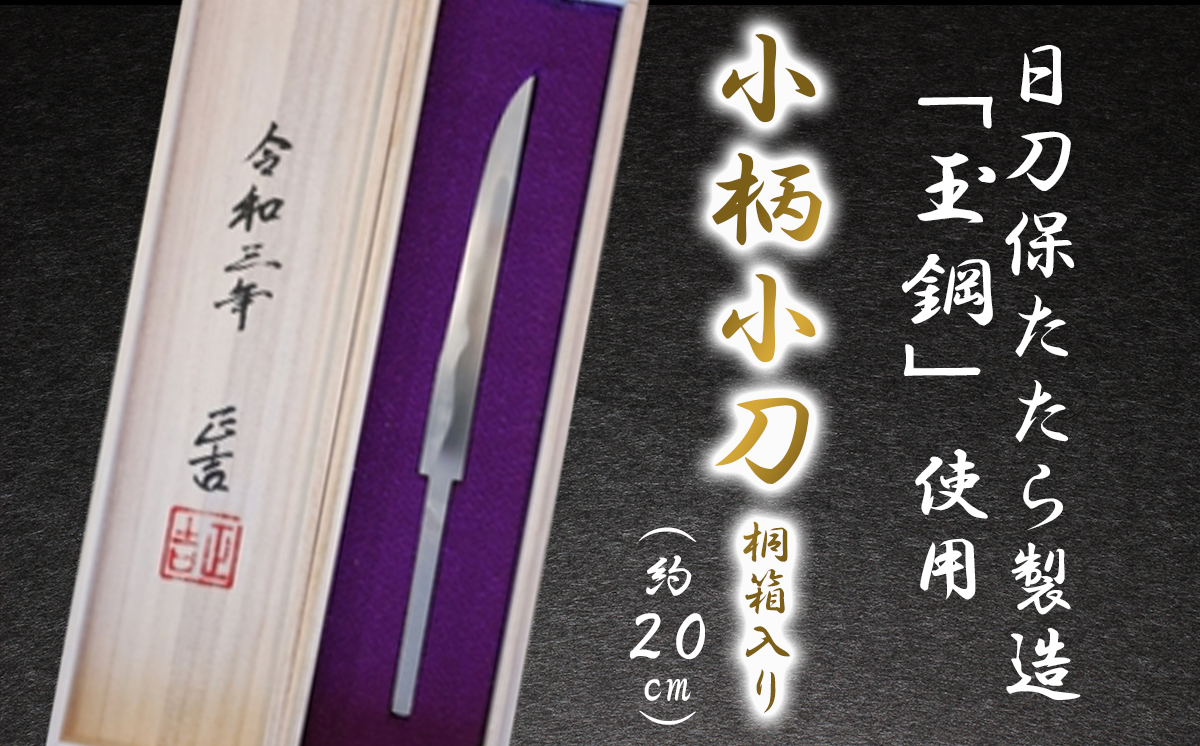 日刀保たたら製造
「玉鋼」使用
小柄小刀 桐箱入り
(約20cm)
令和三年 正吉
正吉